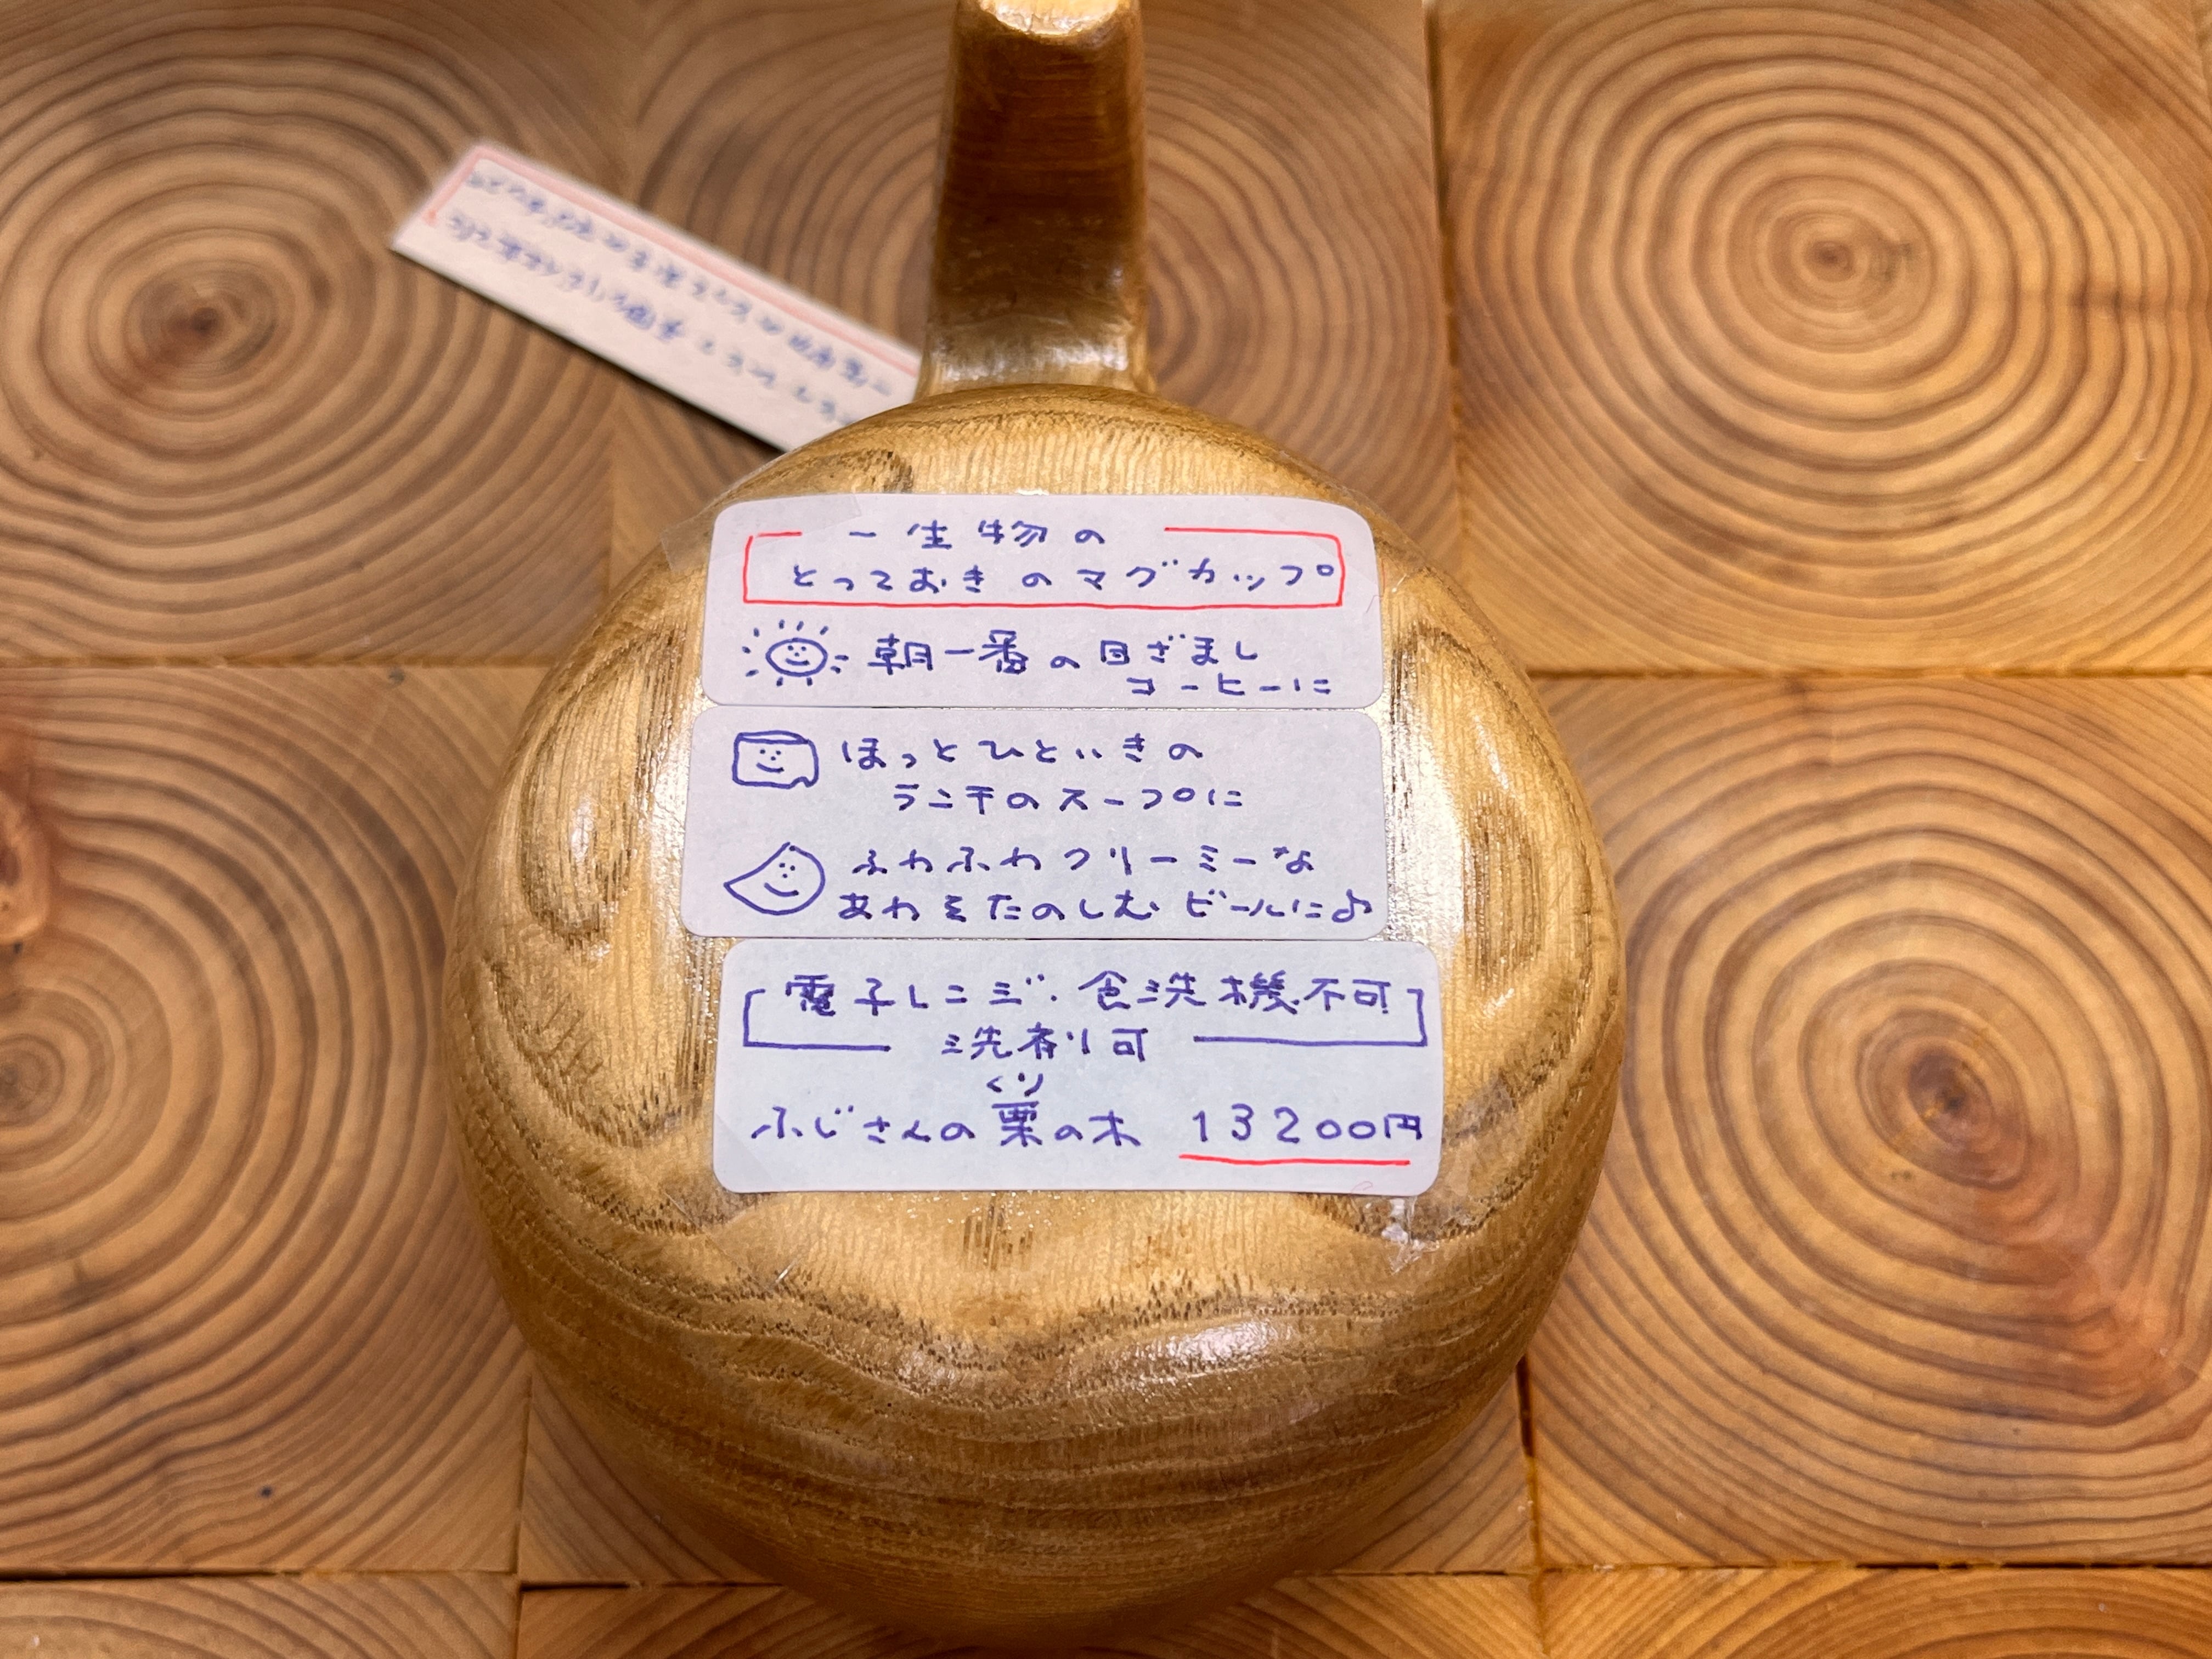 一生物の
とっておきのマグカップ
朝一番の目ざまし
コーヒーに
ほっとひといきの
ランチのスープに
ふわふわクリーミーな
あわをたのしむビールに♪
電子レンジ・食洗機不可
洗剤可
くり
ふじさんの栗の木 13200円